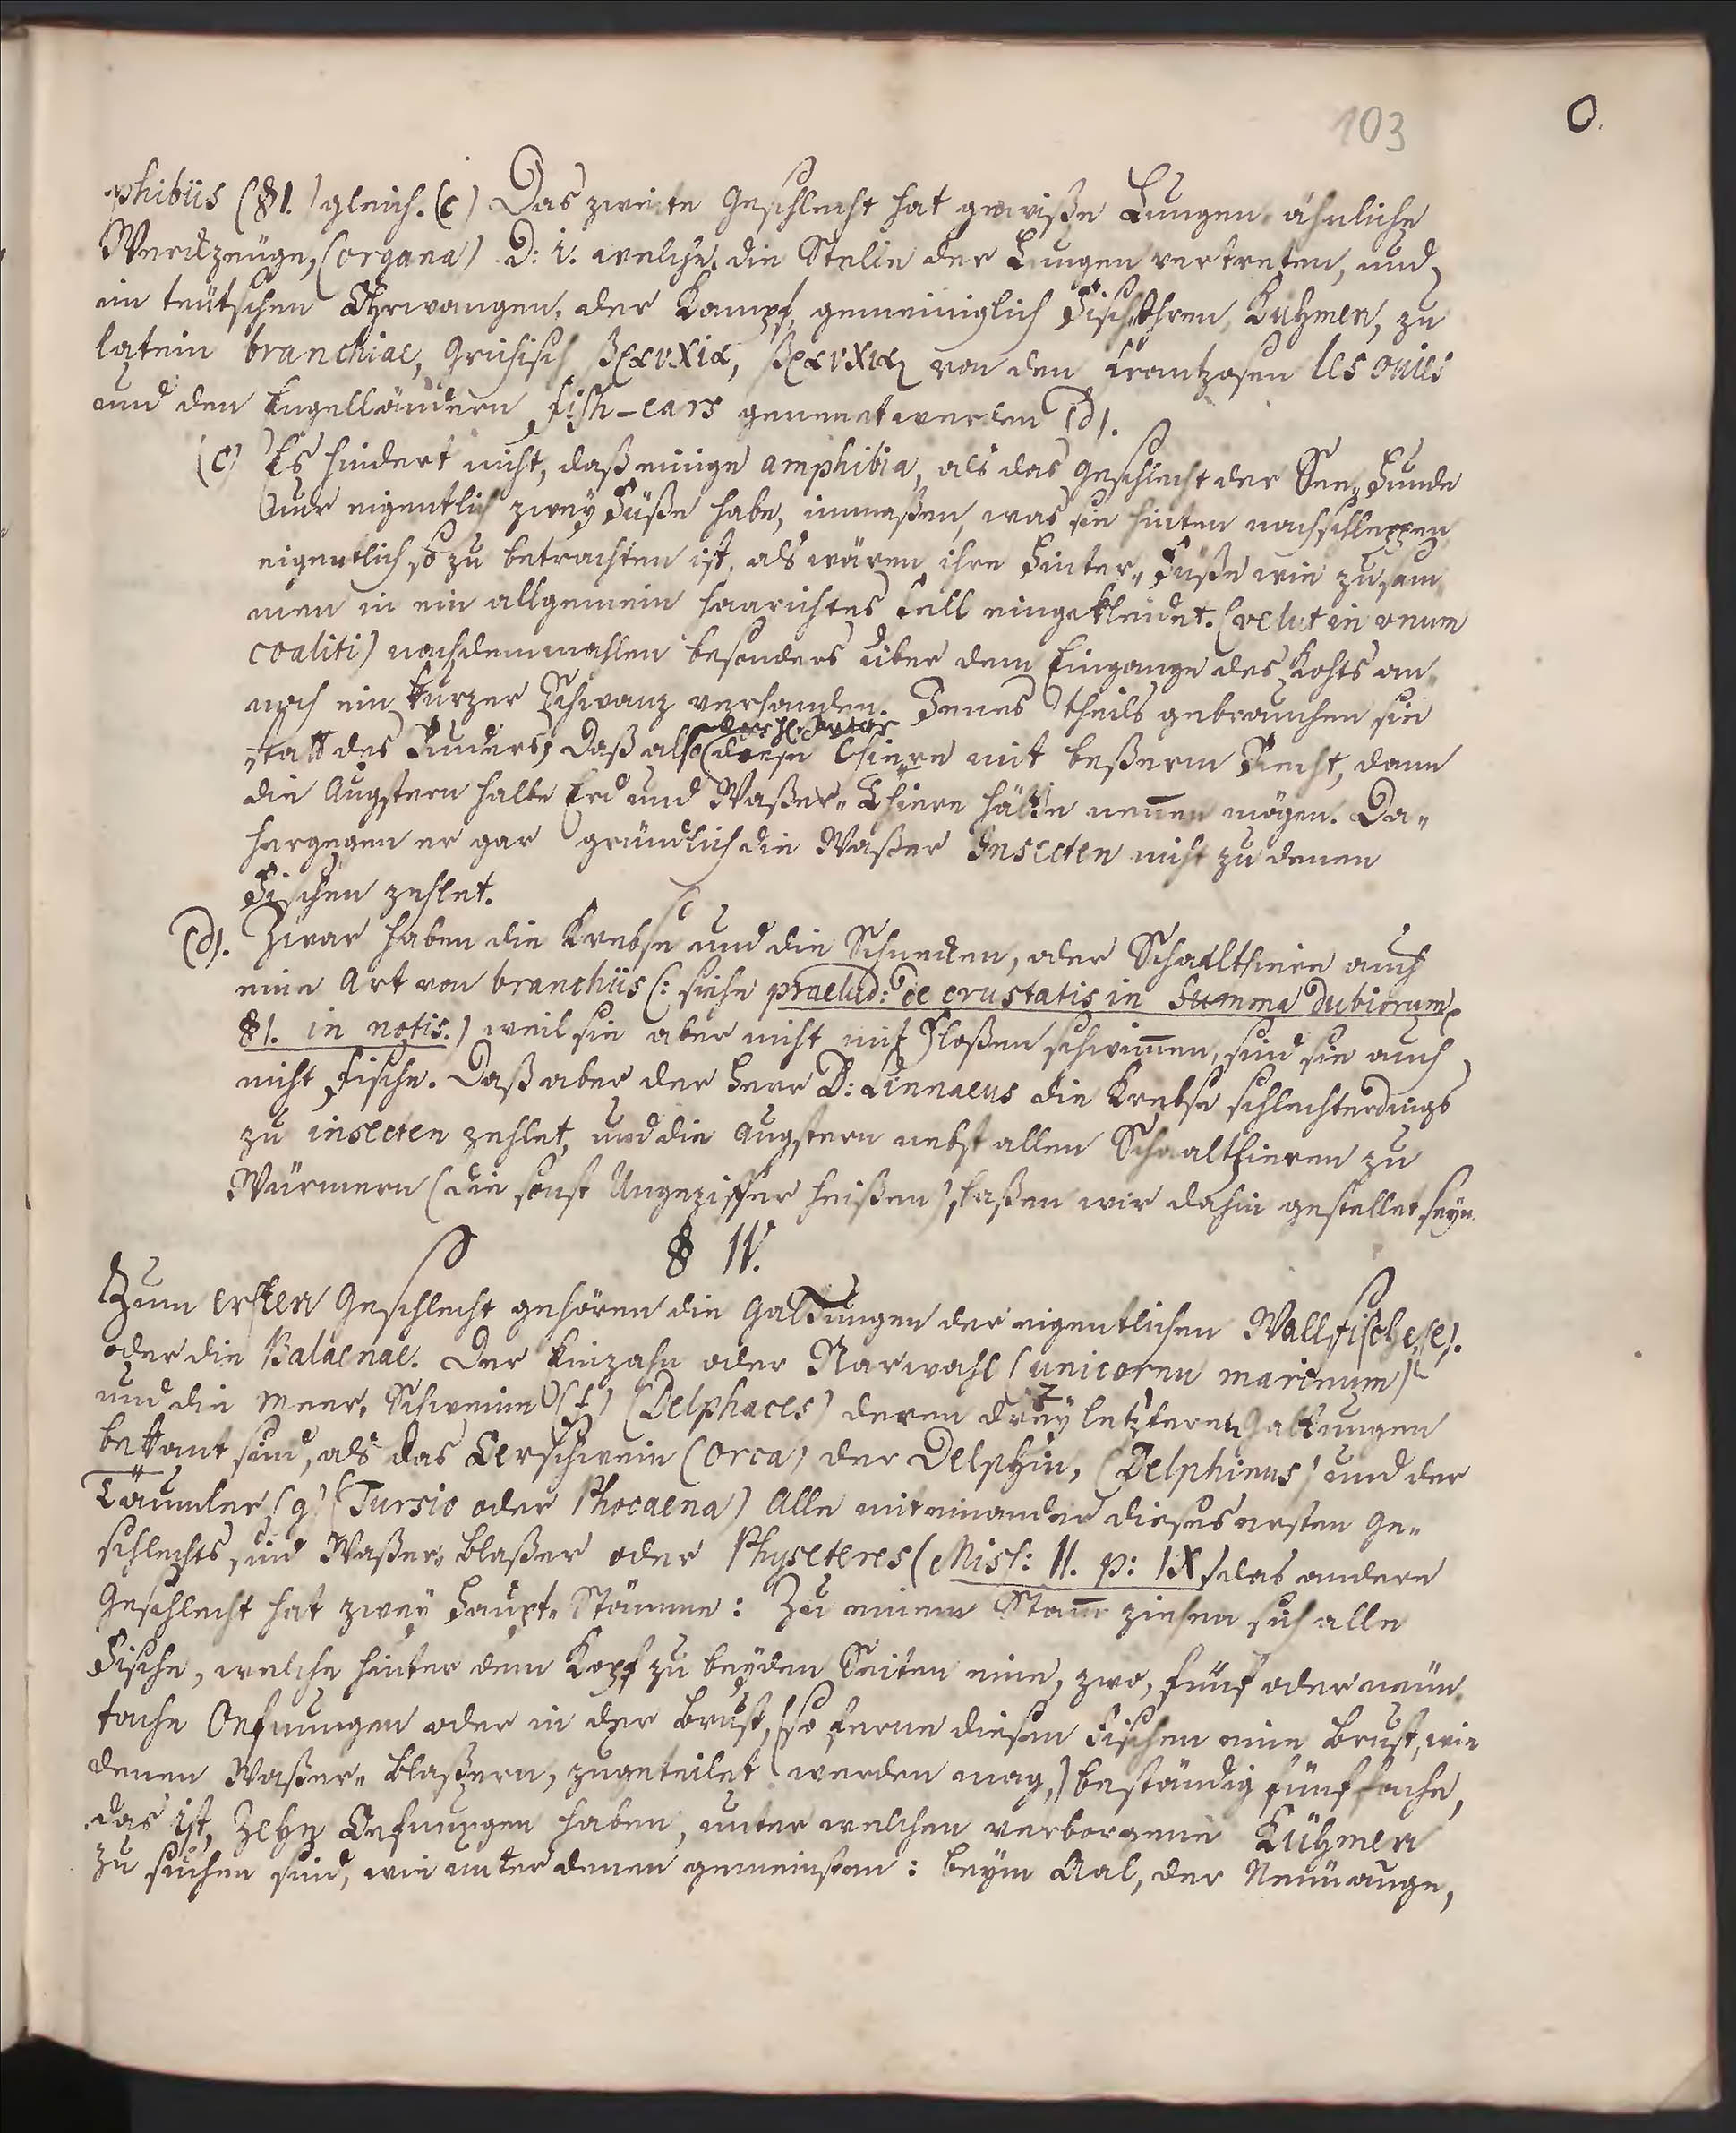 103
O.
phibiis (§1.) gleich. (c) Das zweite Geschlecht hat gewiße Lungen ähnliche
Werckzeüge, (organa) D: i. welche die Stelle der Lungen vertreten, und
im teütschen Ohrwangen, der Kampf, gemeiniglich Fischohren, Kuhmen, zu
latein branchiae, Grichisch βραγχια, βραγχια von den Frantzosen les ouies
und den Engelländern fish-ears genennt werden (d).
(c) Es hindert nicht, daß einige amphibia, als das Geschlecht der See-Hunde
nur eigentlich zweÿ Füße habe, immaßen, was sie hinten nachschleppen
eigentlich so zu betrachten ist, als wären ihre Hinter-Füße wie zusam
men in ein allgemein haarichtes Fell eingekleidet. (velut in unum
coaliti) nachdemmahlen besonders über dem Eingange des Kohts an
noch ein kurzer Schwanz verhanden. Jenes theils gebrauchen sie
statt des Ruders; daß also (der H. Autor
diese Thiere mit beßerm Recht, dann
die Augstern halbe Erd und Waßer-Thiere hätte nennen mögen. Da-
hergegen er gar gründlich die Waßer Insecten nicht zu denen
Fischen zehlet.
(d). Zwar haben die Krebse und die Schnecken, oder Schaalthiere auch
eine Art von branchiis (: siehe praelud: de crustatis in Summa dubiorum
§1. in notis.) weil sie aber nicht mit Floßen schwim̅en, sind sie auch
nicht Fische. Daß aber der Herr D: Linnaeus die Krebse schlechterdings
zu insecten zehlet, und die Augstern nebst allen Schaalthieren zu
Würmern (die sonst Ungeziffer heißen), laßen wir dahin gestellet seÿn.
§ IV.
Zum ersten Geschlecht gehören die Gattungen der eigentlichen Wallfische (e).
oder die Balaenae. Der Einzahn oder Narwahl (unicornu marinum)
und die Meer-Schweine (f) (Delphaces) deren dreÿ letzteren Gattungen
bekant sind, als das Meerschwein (Orca) der Delphin, (Delphinus) und der
Täumler (g) (Tursio oder Phocaena) Alle miteinander dieses ersten Ge-
schlechts sind Waßer-Blaßer oder Physeteres (Miss: II. p: IX) das andere
Geschlecht hat zweÿ Haupt-Stämme: Zu einem Stam̅ ziehen sich alle
Fische, welche hinter dem Kopf zu beÿden Seiten eine, zwo, fünf oder neün
fache Oefnungen oder in der Brust, (so ferne diesen Fischen eine Brust, wie
denen Waßer-Blaßern, zugeteilet werden mag,) beständig fünffache,
das ist, Zehn Oefnungen haben, unter welchen verborgene Kühmen
zu suchen sind, wie unter denen gemeinsten: beÿm Aal, der Neünauge,